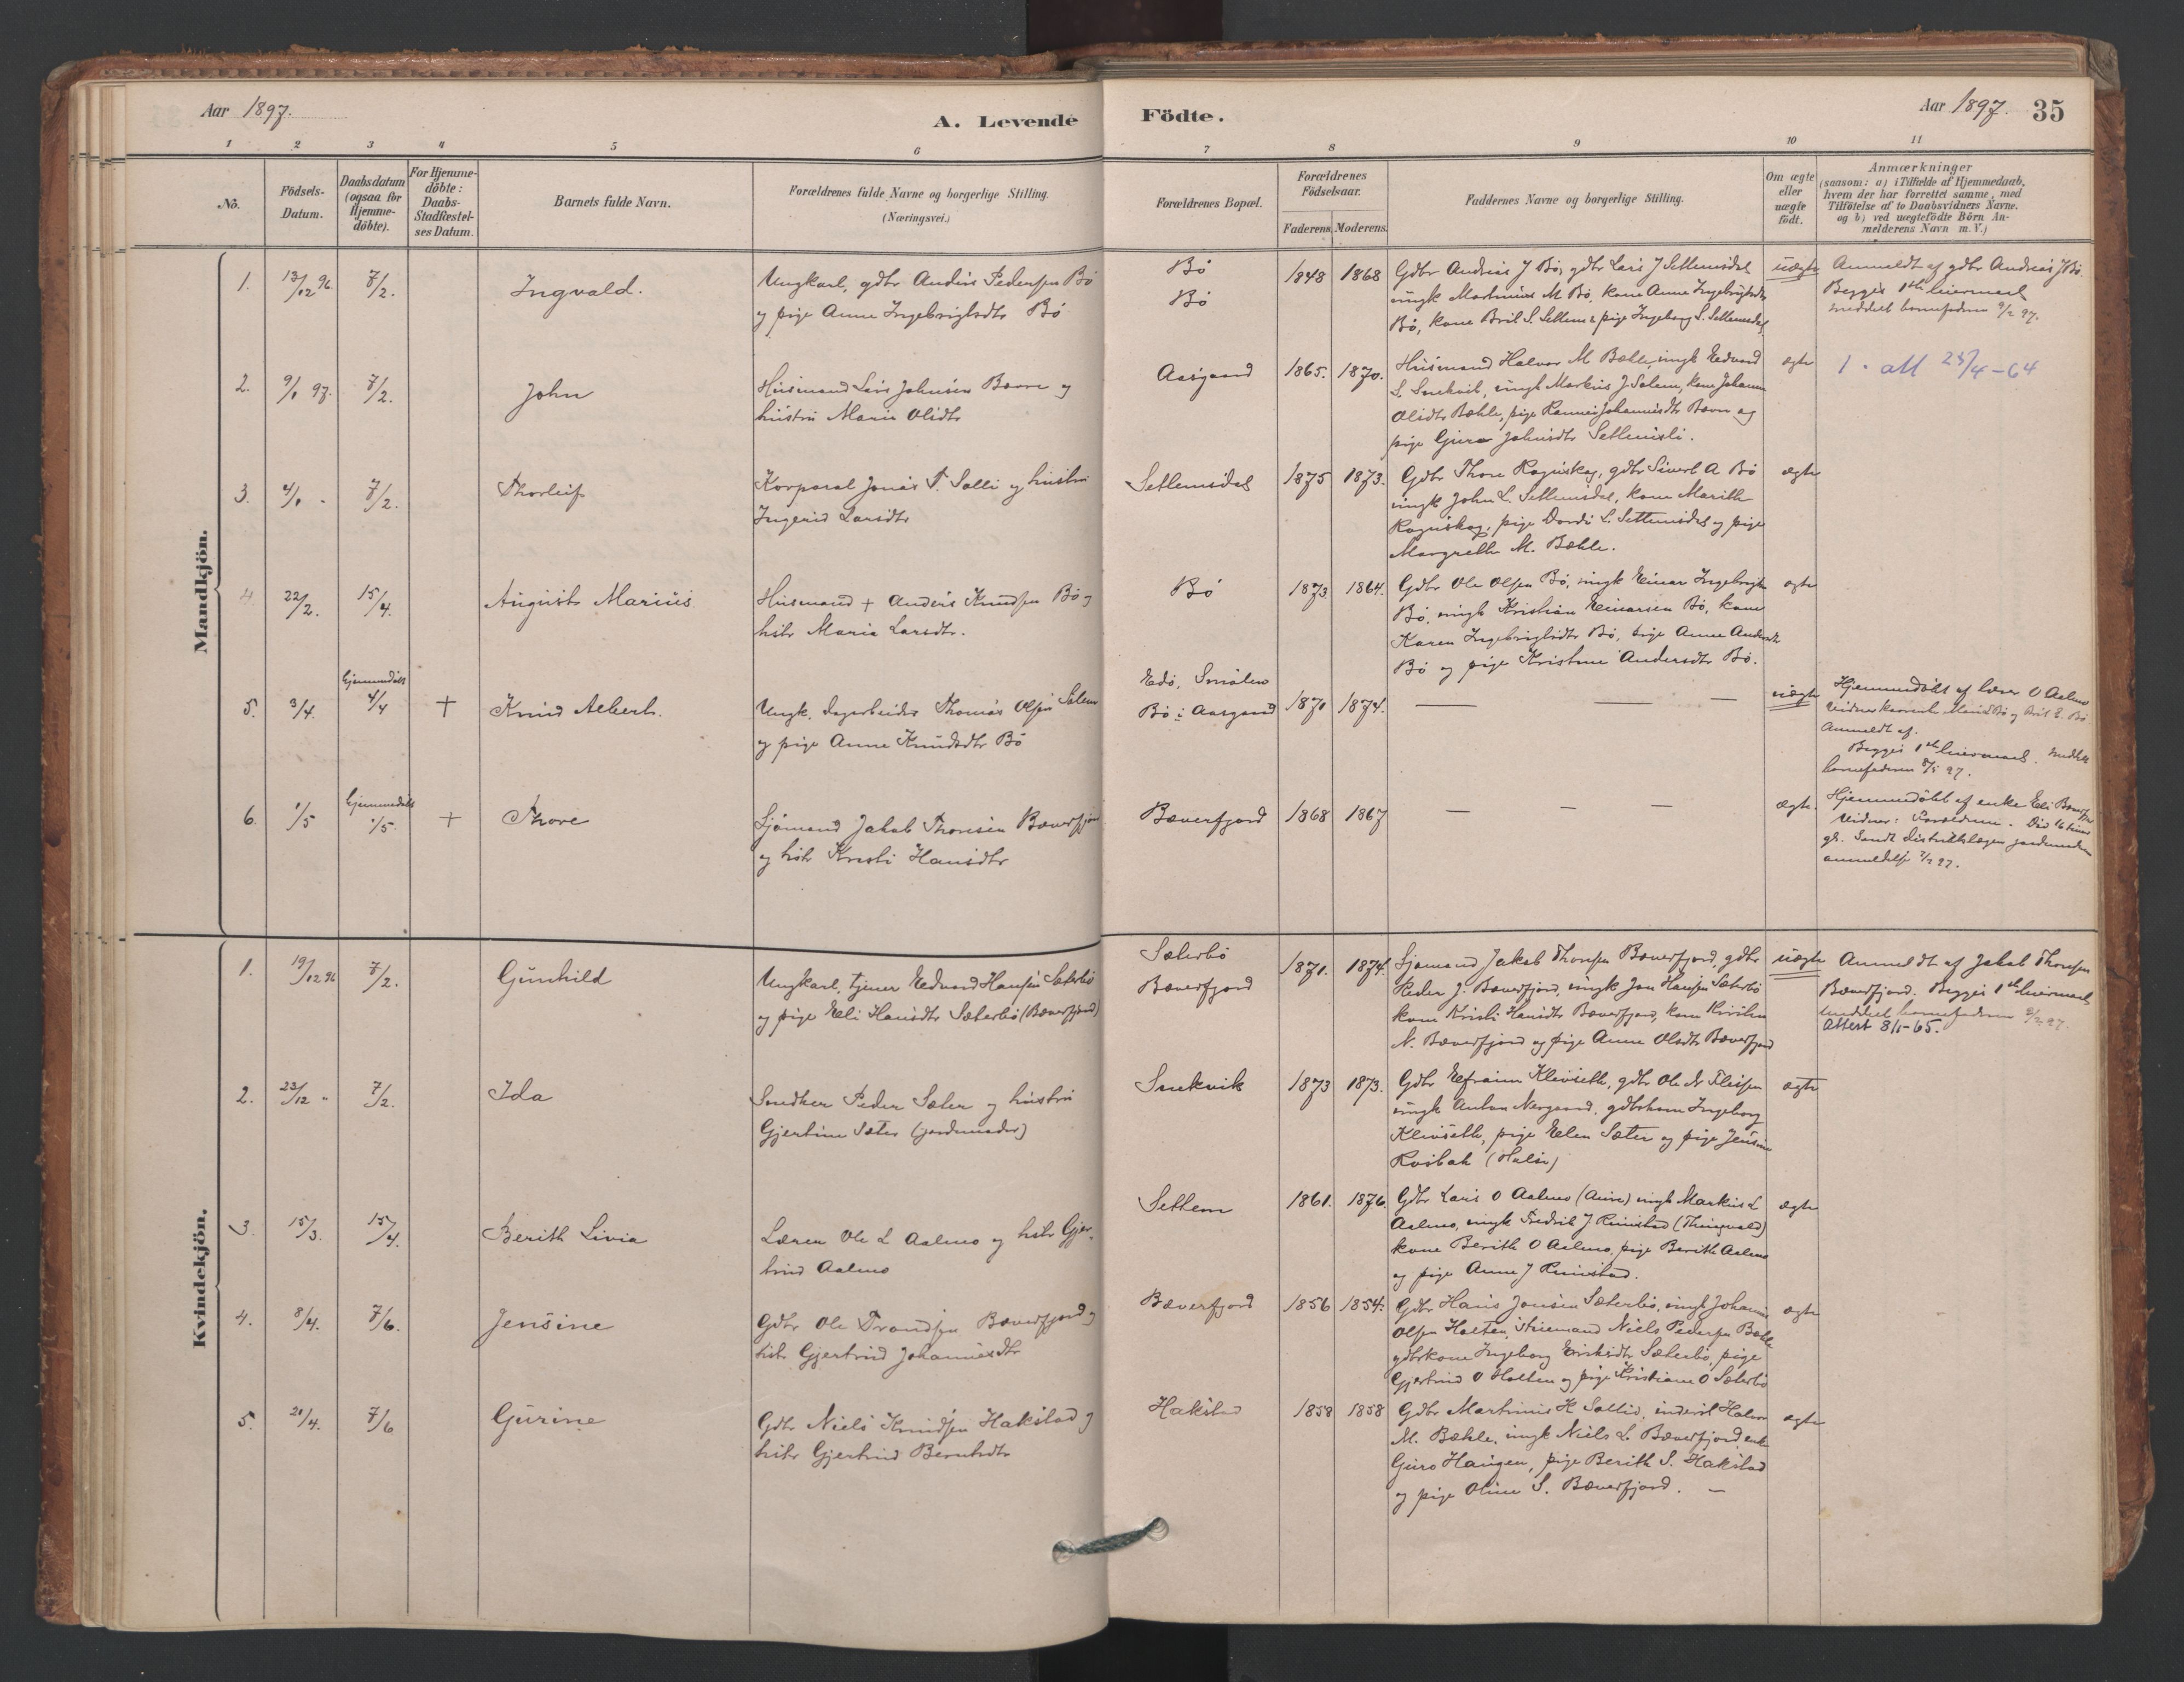 Aar 1897.
A. Levende Födte.
Aar 1897. 35
1 2 3 4 5 6 7 8 9 10 11
No.
Födsels-
Datum.
Daabsdatum
(ogsaa for
Hjemme-
döbte).
For Hjemme-
döbte:
Daabs-
Stadfæstel-
ses Datum.
Barnets fulde Navn.
Forældrenes fulde Navne og borgerlige Stilling.
(Næringsvei.)
Forældrenes Bopæl.
Forældrenes
Födselsaar.
Faderens. Moderens.
Faddernes Navne og borgerlige Stilling.
Om ægte
eller
uægte
födt.
Anmærkninger
(saasom: a) i Tilfælde af Hjemmedaab,
hvem der har forrettet samme, med
Tilföielse af to Daabsvidners Navne.
og b) ved uægtefödte Börn An-
melderens Navn m. V.)
Mandkjön.
1. 13/12 96. 7/2. Ingvald.
Ungkarl, gdbr Anders Pedersen Bö
og pige Anne Ingebrigtsdtr Bö
Bö
Bö
1848 1868
Gdbr Andreas J Bö, gdbr Lars J Settemsdal
ungk Martinus M Bö, kone Anne Ingebrigtsdtr
Bö, kone Bril S. Settem & pige Ingeborg S. Settemsdal
uægte
Anmeldt af gdbr Andreas J Bö.
Begges 1ste leiermaal
meddelt barnefaderen 9/2 97.
2. 9/1 97. 7/2. John
Husmand Lars Johnsen Bævre og
hustru Marie Olsdtr
Aasgaard
1865. 1870.
Husmand Halvor M Bæhle, ungk Edvard
S. Snekvik, ungk Markus J Salem, kone Johanna
Olsdtr Bæhle, pige Johannesdtr Bævre og
pige Guro Johnsdtr Settemsli.
ægte
1. att 25/4-64
3. 4/1 - 7/2. Thorleif
Korporal Jonas T. Salli og hustru
Ingerid Larsdtr
Settemsdal
1875 1873.
Gdbr Thore Rognskog, gdbr Sivert A Bö
ungk John L. Settemsdal, kone Marith
Rognskog, pige Dordi L. Settemsdal og pige
Margrethe M. Bæhle.
ægte
4 22/2. 15/4. August Marius
Husmand + Anders Knudsen Bö og
hstr Maria Larsdtr.
Bö
1873. 1864.
Gdbr Ole Olsen Bö, ungk Einar Ingebrigtsen
Bö, ungk Kristian Einarsen Bö, kone
Karen Ingebrigtsdtr Bö, pige Anne Andersdtr
Bö og pige Kristine Andersdtr Bö.
ægte
5. 3/4. hjemmedöbt 4/4 + Knud Albert.
Ungk. dagarbeider Thomas Olsen Salem
og pige Anne Knudsdtr Bö
Edö, Smölen
Bö i Aasgaard
1870 1874.
— — —
uægte
Hjemmedöbt af lærer O Aalmo
Vidner Marie L Bö og Bril E. Bö
Anmeldt af.
Begges 1ste leiermaal. meddelt
barnefaderen 8/5 97.
6. 1/5 hjemmedöbt 1/5. + Thore
Sjömand Jakob Thoresen Bæverfjord
og hstr Kristi Hansdtr
Bæverfjord
1868 1867
— — —
ægte.
Hjemmedöbt af enke Eli Bæverfjord
Vidner: Forældrene. Död 16 timer
gl. Sendt distriktslægen jordemoderens
anmeldelse 7/5 97.
Kvindekjön.
1. 19/12 96 7/2. Gunhild
Ungkarl, tjener Edvard Hansen Sæterbö
og pige Eli Hansdtr Sæterbö (Bæverfjord)
Sæterbö
Bæverfjord
1871. 1874.
Sjömand Jakob Thoresen Bæverfjord, gdbr
Peder J. Bæverfjord, ungk Jon Hansen Sæterbö
kone Kristi Hansdtr Bæverfjord, kone
N. Bæverfjord og pige Anne Olsdtr Bæverfjord
uægte
Anmeldt af Jakob Thoresen
Bæverfjord. Begges 1ste leiermaal
meddelt barnefaderen 9/2 97.
Attest 8/1-65.
2. 23/12 " 7/2. Ida
Snedker Peder Sæter og hustru
Gjertine Sæter (jordemoder)
Snekvik
1873 1873.
Gdbr Efraim Klevseth, gdbr Ole N
ungk Anton Nergaard, gdbrkone Ingeborg
Klevseth, pige Elen Sæter og pige Jensine
Rosbak (Halse)
ægte
3. 15/3. 15/4. Berith Livia
Lærer Ole L Aalmo og hstr Gjer-
trud Aalmo
Settem
1861. 1876.
Gdbr Lars O Aalmo (Aure) ungk Markus L
Aalmo, ungk Fredrik J Rimstad (Thingvold)
kone Berith O Aalmo, pige Berith Aalmo
og pige Anne J Rimstad.
ægte
4. 8/4. 7/6. Jensine
Gdbr Ole Trondsen Bæverfjord og
hstr Gjertrud Johannesdtr
Bæverfjord
1856 1854.
Gdbr Hans Jonsen Sæterbö, ungk Johannes
Olsen Holten, Niels Pedersen Bæhle
gdbrkone Ingeborg Eriksdtr Sæterbö, pige
Gjertrud O Holten og pige Kristiane O Sæterbö
ægte
5. 20/4. 7/6 Gurine
Gdbr Niels Knudsen Hakstad og
hstr Gjertrud Berntsdtr
Hakstad
1858 1858
Gdbr Martinus H Sollid, inderst Halvor
M. Bæhle, ungk Niels L. Bæverfjord, enke
Guro Haugen, pige Berith S. Hakstad
og pige Oline S. Bæverfjord. —
ægte